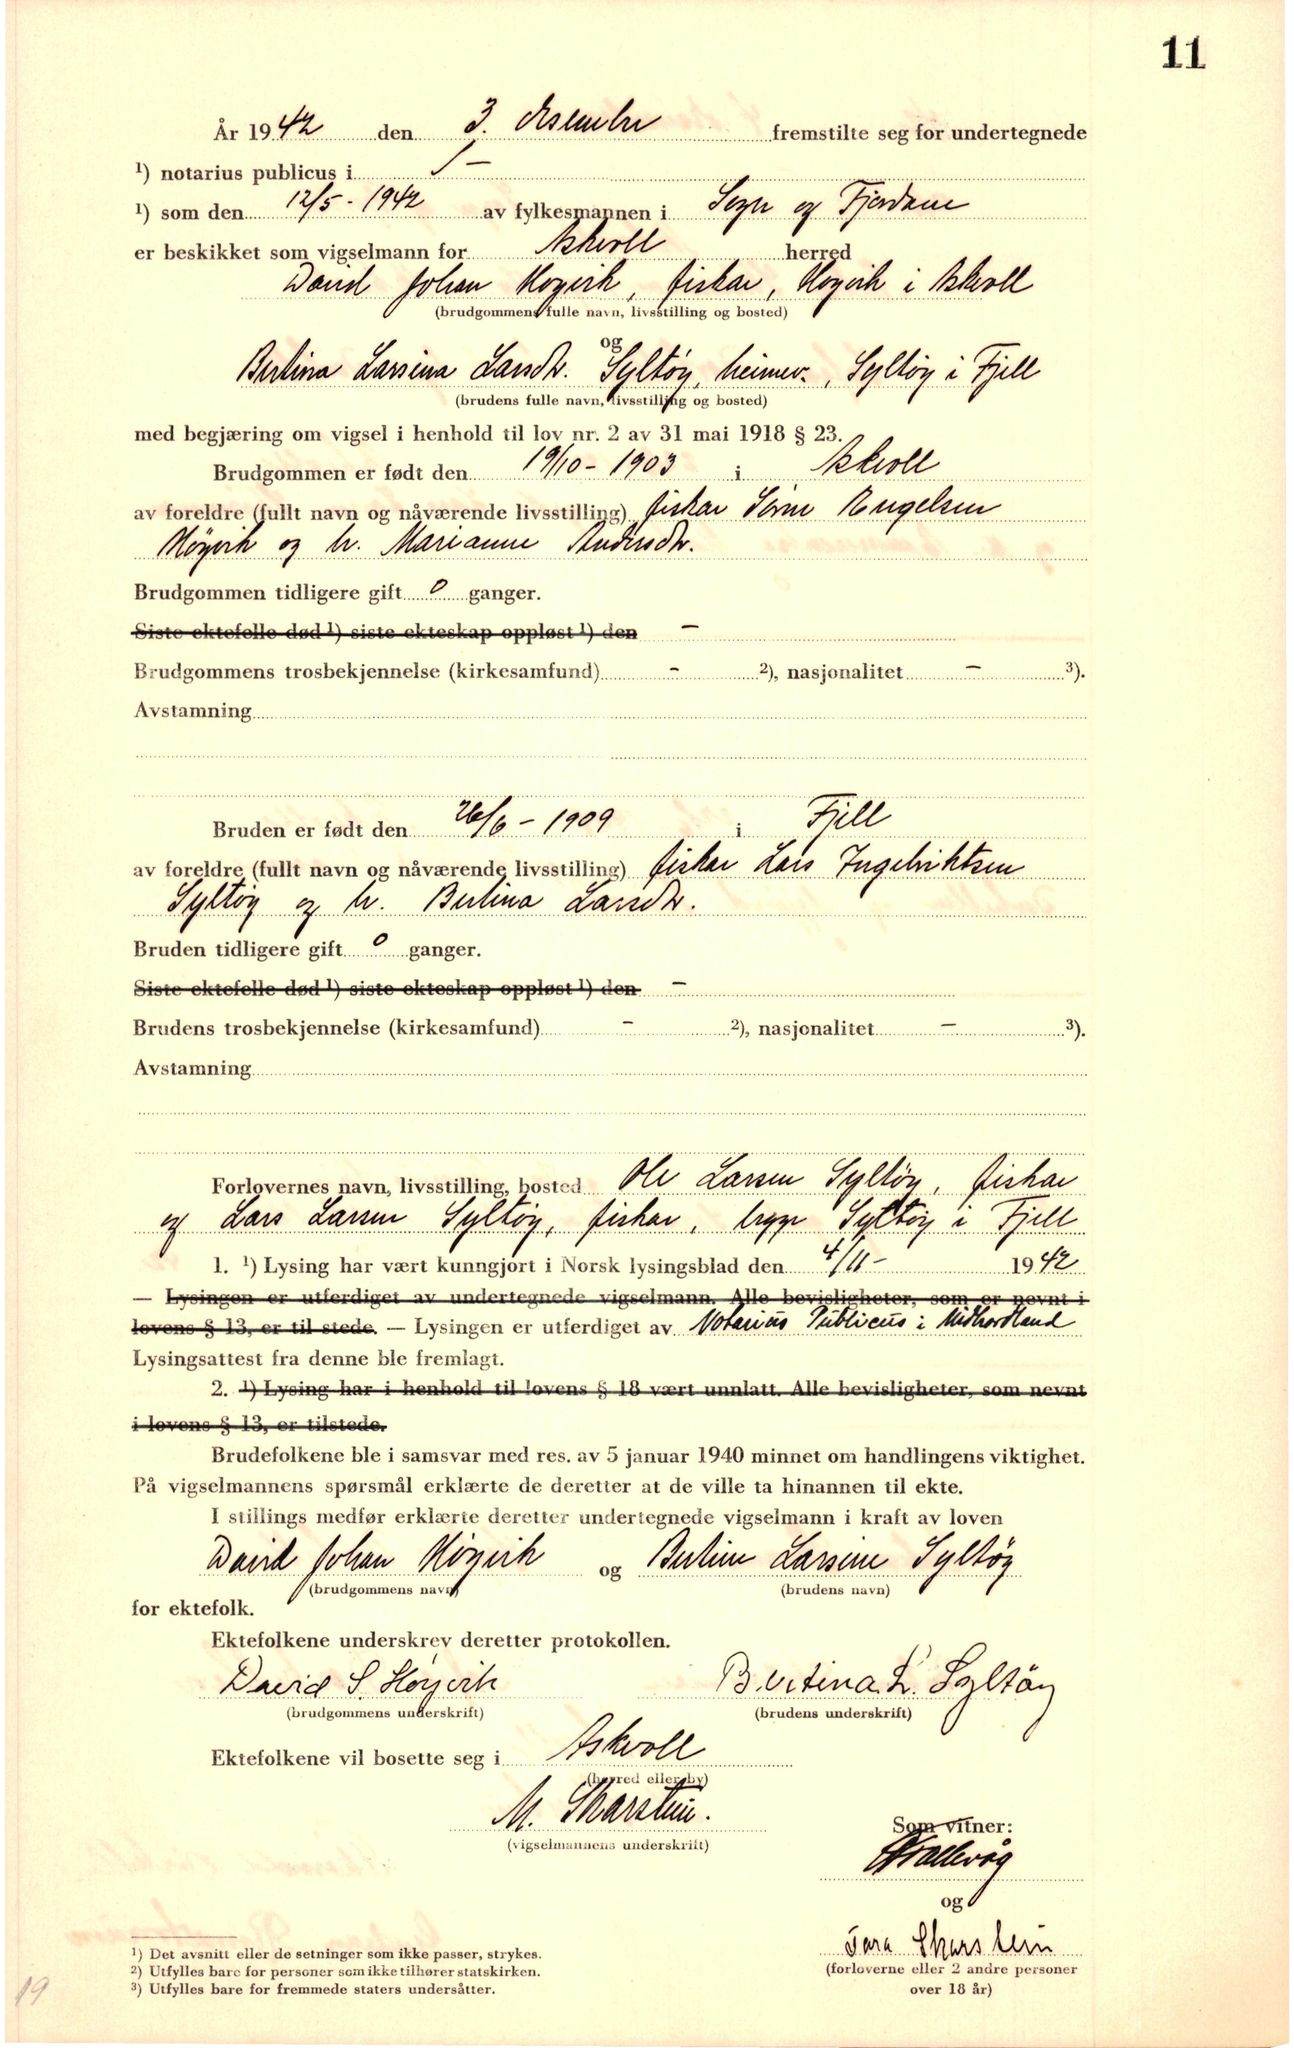 11
År 1942 den 3. desember fremstilte seg for undertegnede
¹) notarius publicus i -
¹) som den 12/5 - 1942 av fylkesmannen i Sogn og Fjordane
er beskikket som vigselmann for Askvoll herred
David Johan Høyvik, fiskar, Høyvik i Askvoll
(brudgommens fulle navn, livsstilling og bosted)
og
Bertina Larsina Larsdtr. Syltøy, heimev., Syltøy i Fjell
(brudens fulle navn, livsstilling og bosted)
med begjæring om vigsel i henhold til lov nr. 2 av 31 mai 1918 § 23.
Brudgommen er født den 19/10 - 1903 i Askvoll
av foreldre (fullt navn og nåværende livsstilling) fiskar Søren Engelsen
Høyvik og h. Marianne Andersdtr.
Brudgommen tidligere gift 0 ganger.
Siste ektefelle død ¹) siste ekteskap oppløst ¹) den -
Brudgommens trosbekjennelse (kirkesamfund) - ²), nasjonalitet - ³).
Avstamning
Bruden er født den 26/6 - 1909 i Fjell
av foreldre (fullt navn og nåværende livsstilling) fiskar Lars Ingebriktsen
Syltøy og h. Bertina Larsdtr.
Bruden tidligere gift 0 ganger.
Siste ektefelle død ¹) siste ekteskap oppløst ¹) den -
Brudens trosbekjennelse (kirkesamfund) - ²), nasjonalitet - ³).
Avstamning
Forlovernes navn, livsstilling, bosted Ole Larsen Syltøy, fiskar
og Lars Larsen Syltøy, fiskar, begge Syltøy i Fjell
1. ¹) Lysing har vært kunngjort i Norsk lysingsblad den 4/11 - 1942
— Lysingen er utferdiget av undertegnede vigselmann. Alle bevisligheter, som er nevnt i
lovens § 13, er til stede. — Lysingen er utferdiget av Notarius Publicus i Midhordland
Lysingsattest fra denne ble fremlagt.
2. ¹) Lysing har i henhold til lovens § 18 vært unnlatt. Alle bevisligheter, som nevnt
i lovens § 13, er tilstede.
Brudefolkene ble i samsvar med res. av 5 januar 1940 minnet om handlingens viktighet.
På vigselmannens spørsmål erklærte de deretter at de ville ta hinannen til ekte.
I stillings medfør erklærte deretter undertegnede vigselmann i kraft av loven
David Johan Høyvik og Bertine Larsine Syltøy
(brudgommens navn) (brudens navn)
for ektefolk.
Ektefolkene underskrev deretter protokollen.
David S. Høyvik Bertina L. Syltöy
(brudgommens underskrift) (brudens underskrift)
Ektefolkene vil bosette seg i Askvoll
(herred eller by)
M. Skarstein.
(vigselmannens underskrift)
Som vitner:
og
Tara Skarstein
(forloverne eller 2 andre personer
over 18 år)
¹) Det avsnitt eller de setninger som ikke passer, strykes.
²) Utfylles bare for personer som ikke tilhører statskirken.
³) Utfylles bare for fremmede staters undersåtter.
19